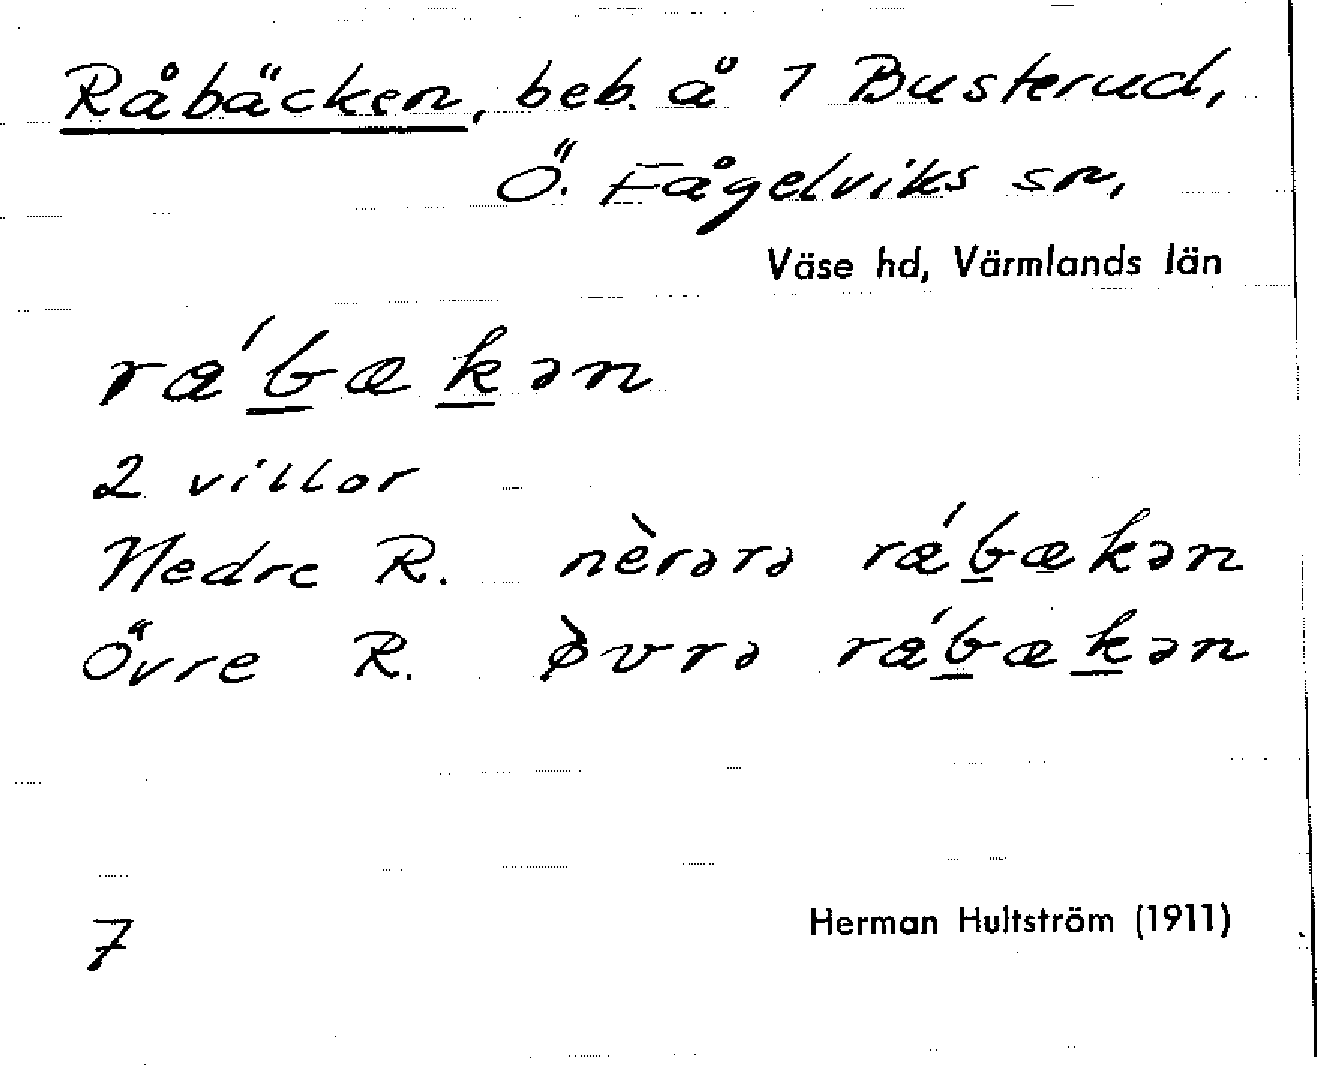 Råbäcken, beb. å 1 Busterud,
Ö. Fågelviks sn,
Väse hd, Värmlands län
ræ´bækən
2 villor
Nedre R. nèrərə ræ´bækən
Övre R. ø̀vrə ræ´bækən
7
Herman Hultström (1911)